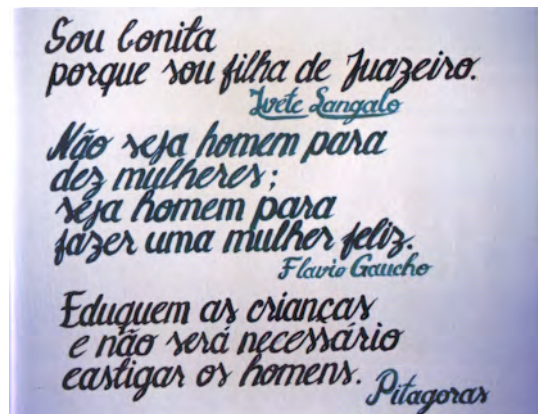 Sou bonita
porque sou filha de Juazeiro.
Ivete Sangalo
Não seja homem para
dez mulheres;
seja homem para
fazer uma mulher feliz.
Flavio Gaucho
Eduquem as crianças
e não será necessário
castigar os homens.
Pitagoras